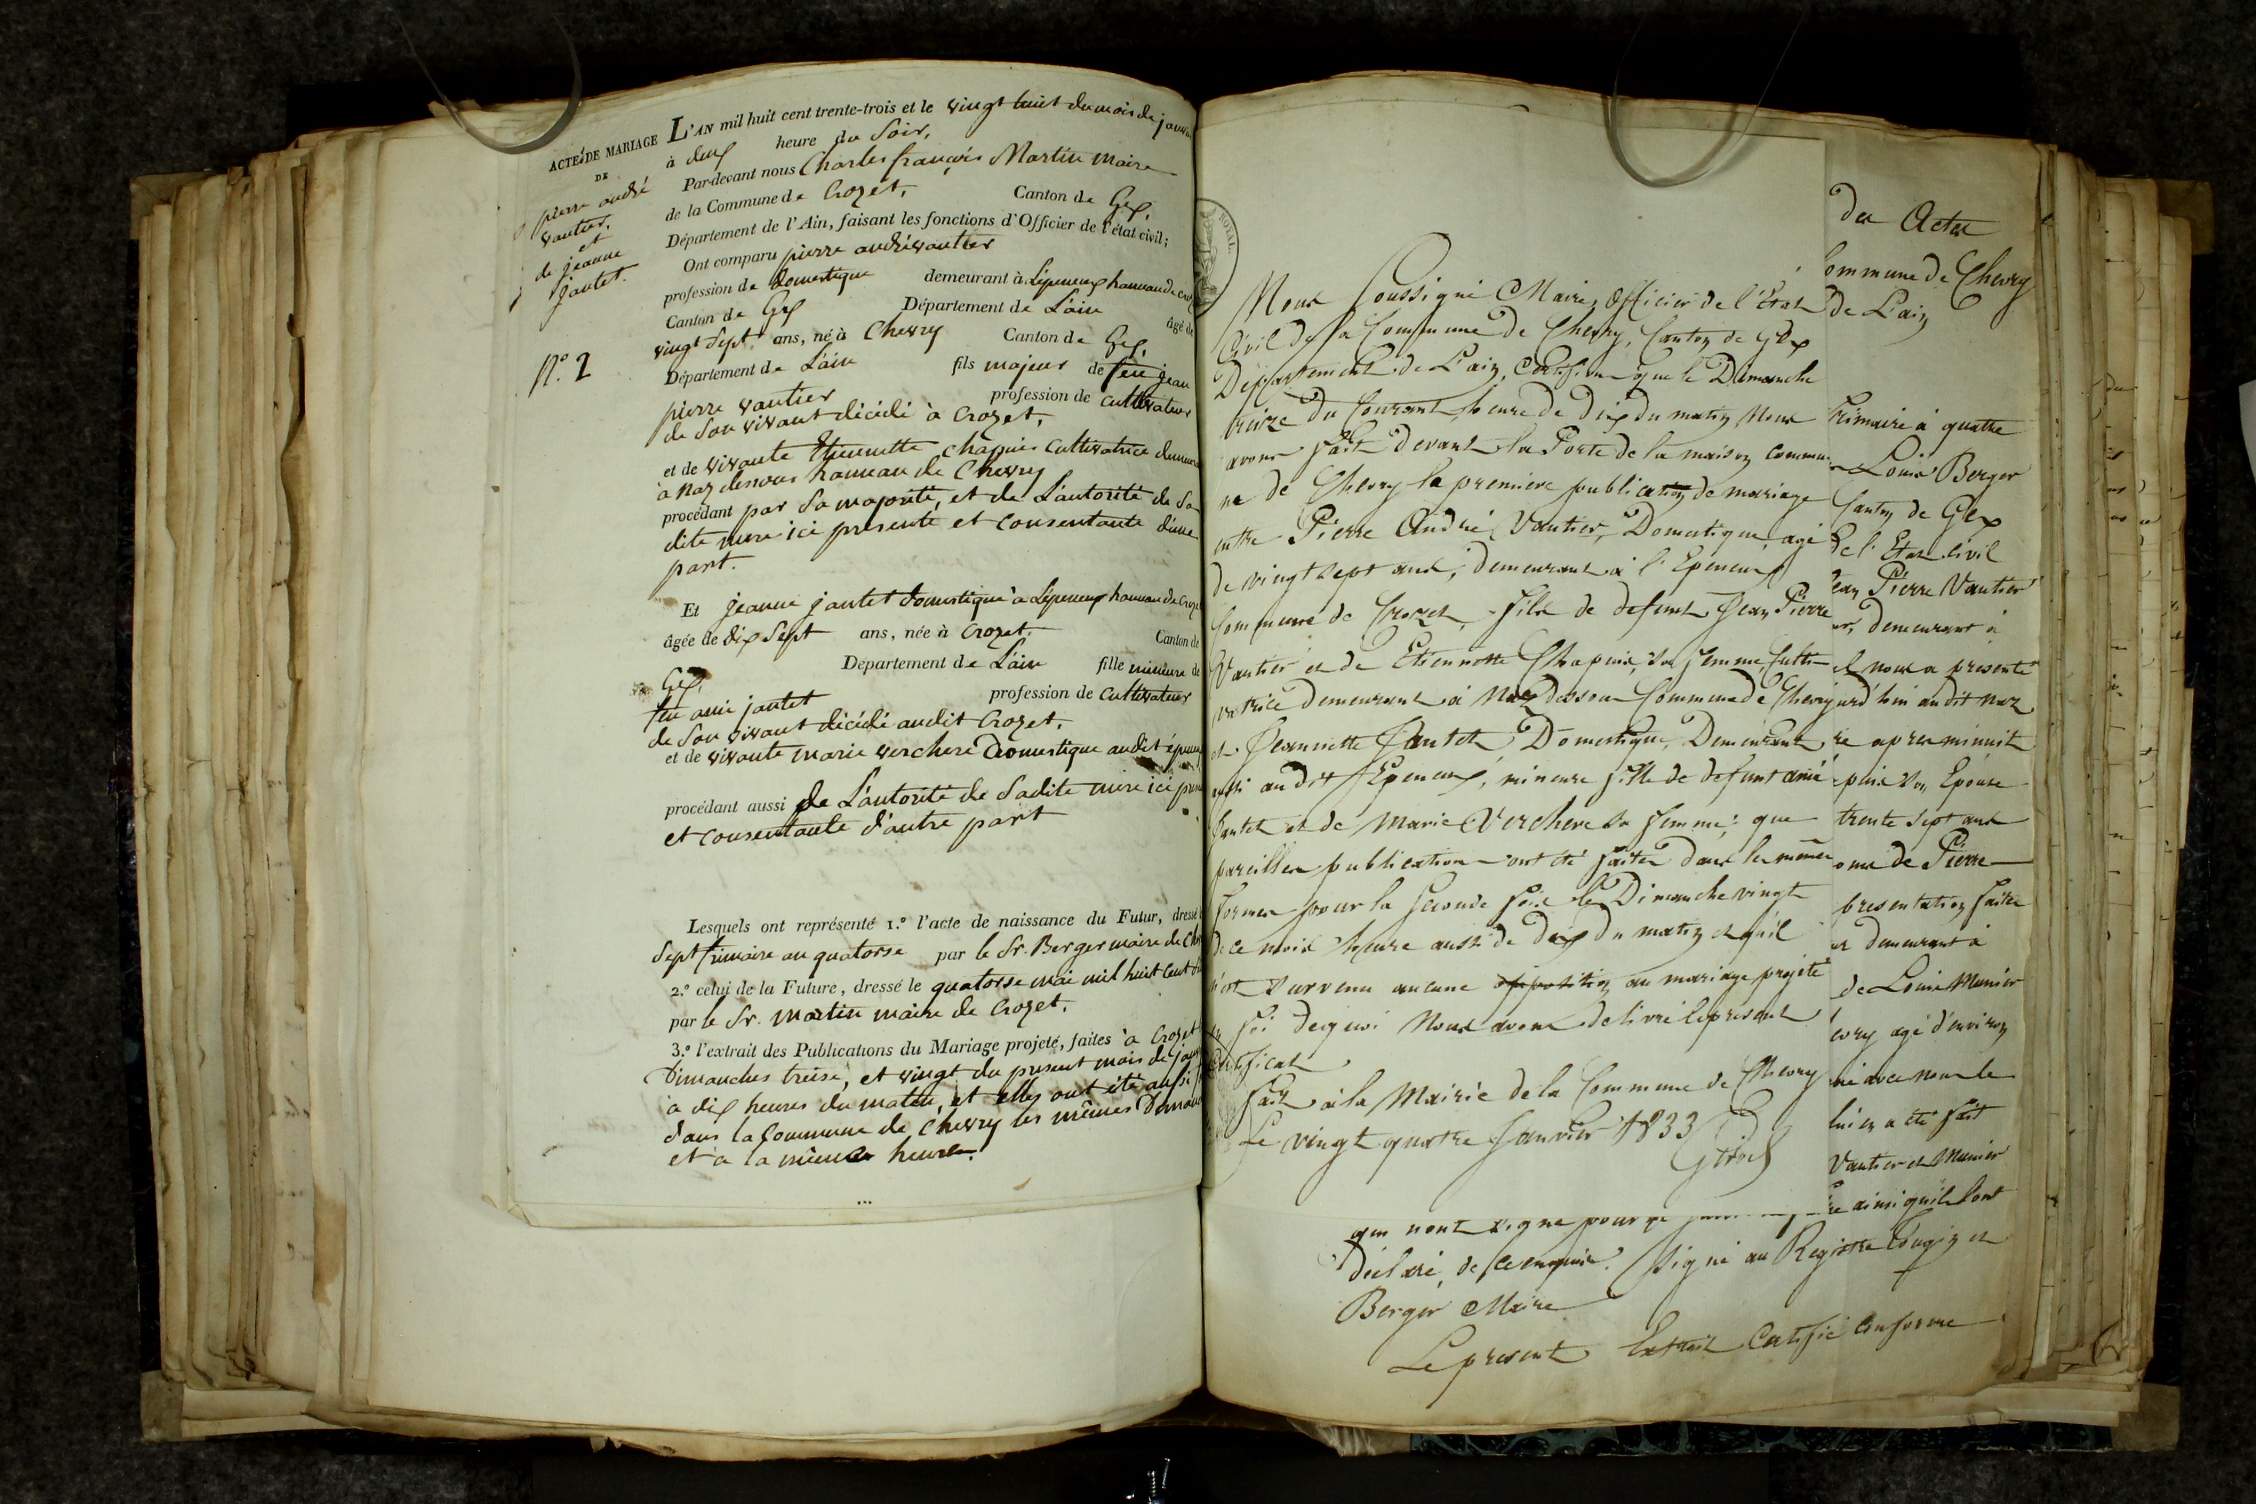 ACTE DE MARIAGE
DE
pierre andré
vautier.
et
de jeanne
jantet.
N.º 2
L'AN mil huit cent trente-trois et le vingt huit du mois de
à deux heure du Soir,
Par-devant nous Charles françois Martin Maire
de la Commune de Crozet, Canton de Gex,
Département de l'Ain, faisant les fonctions d'Officier de l'état civil;
Ont comparu pierre andré vautier
profession de domestique demeurant à Lépeneux hameau de
Canton de Gex Département de L'ain âgé de
vingt Sept ans, né à Chevry Canton de Gex,
Département de L'ain fils majeur de feu jean
pierre vautier profession de cultivateur
de Son vivant décédé à Crozet,
et de vivante Etiennette chapuis cultivatrice
à Naz dessous hameau de Chevry
procédant par Sa majorité, et de L'autorité de Sa
dite mere ici présente et consentante d'une
part.
Et jeanne jantet domestique à Lépeneux hameau de
âgée de dix Sept ans, née à Crozet Canton de
Gex, Département de L'ain fille mineure de
feu ami jantet profession de cultivateur
de Son vivant décédé audit Crozet,
et de vivante marie verchere Domestique audit
procédant aussi de L'autorité de Sadite mère ici
et consentante d'autre part
Lesquels ont représenté 1.º l'acte de naissance du Futur, dressé
Sept frimaire an quatorse par le Sr. Berger maire de
2.º celui de la Future, dressé le quatorse mai mil huit cent
par le Sr. Martin maire de Crozet.
3.º l'extrait des Publications du Mariage projeté, faites à Crozet
Dimanches treise, et vingt du present mois de
à dix heures du matin, et elles ont été aussi
dans la Commune de Chevry les mêmes
et a la même heure.
ROYAL
Nous Soussigné Maire, Officier de l'Etat
Civil de la Commune de Chevry, Canton de Gex
Département de L'ain, Certifions que le Dimanche
treize du Courant, heure de dix du matin, Nous
avons fait devant la Porte de la maison commu-
ne de Chevry la première publication de mariage
entre Pierre André Vautier, Domestique, agé
de vingt sept ans, demeurant à l'Epeneux
Commune de Crozet, fils de defunt Jean Pierre
Vautier et de Etiennette Chapuis, sa femme, Culti-
vatrice demeurant à Naz dessous Commune de Chevry
et Jeannette Jantet Domestique, Demeurant
aussi audit Epeneux, mineure fille de defunt ami
Jantet et de Marie Verchere sa femme; que
pareilles publication ont été faites dans les mêmes
formes pour la Seconde fois le Dimanche vingt
de ce mois heure aussi de dix du matin et qu'il
n'est survenu aucune opposition au mariage projeté
En foi de quoi Nous avons delivré le present
Certificat
Fait à la Mairie de la Commune de Chevry
Le vingt quatre Janvier 1833
Girod
des Actes
Commune de Chevry
de L'ain
frimaire à quatre
Louis Berger
Canton de Gex
de l'Etat Civil
Jean Pierre Vautier
demeurant à
nous a presenté
aujourd'hui audit Naz
après minuit
Epouse
trente sept ans
de Pierre
presentation faite
demeurant à
de Louis Munier
agé d'environ
avec nous le
lui en a été fait
Vautier et Munier
ainsi qu'ils l'ont
qui n'ont signé pour ne
déclaré, de ce enquis. Signé au Registre et
Berger Maire
Le present Extrait Certifié conforme